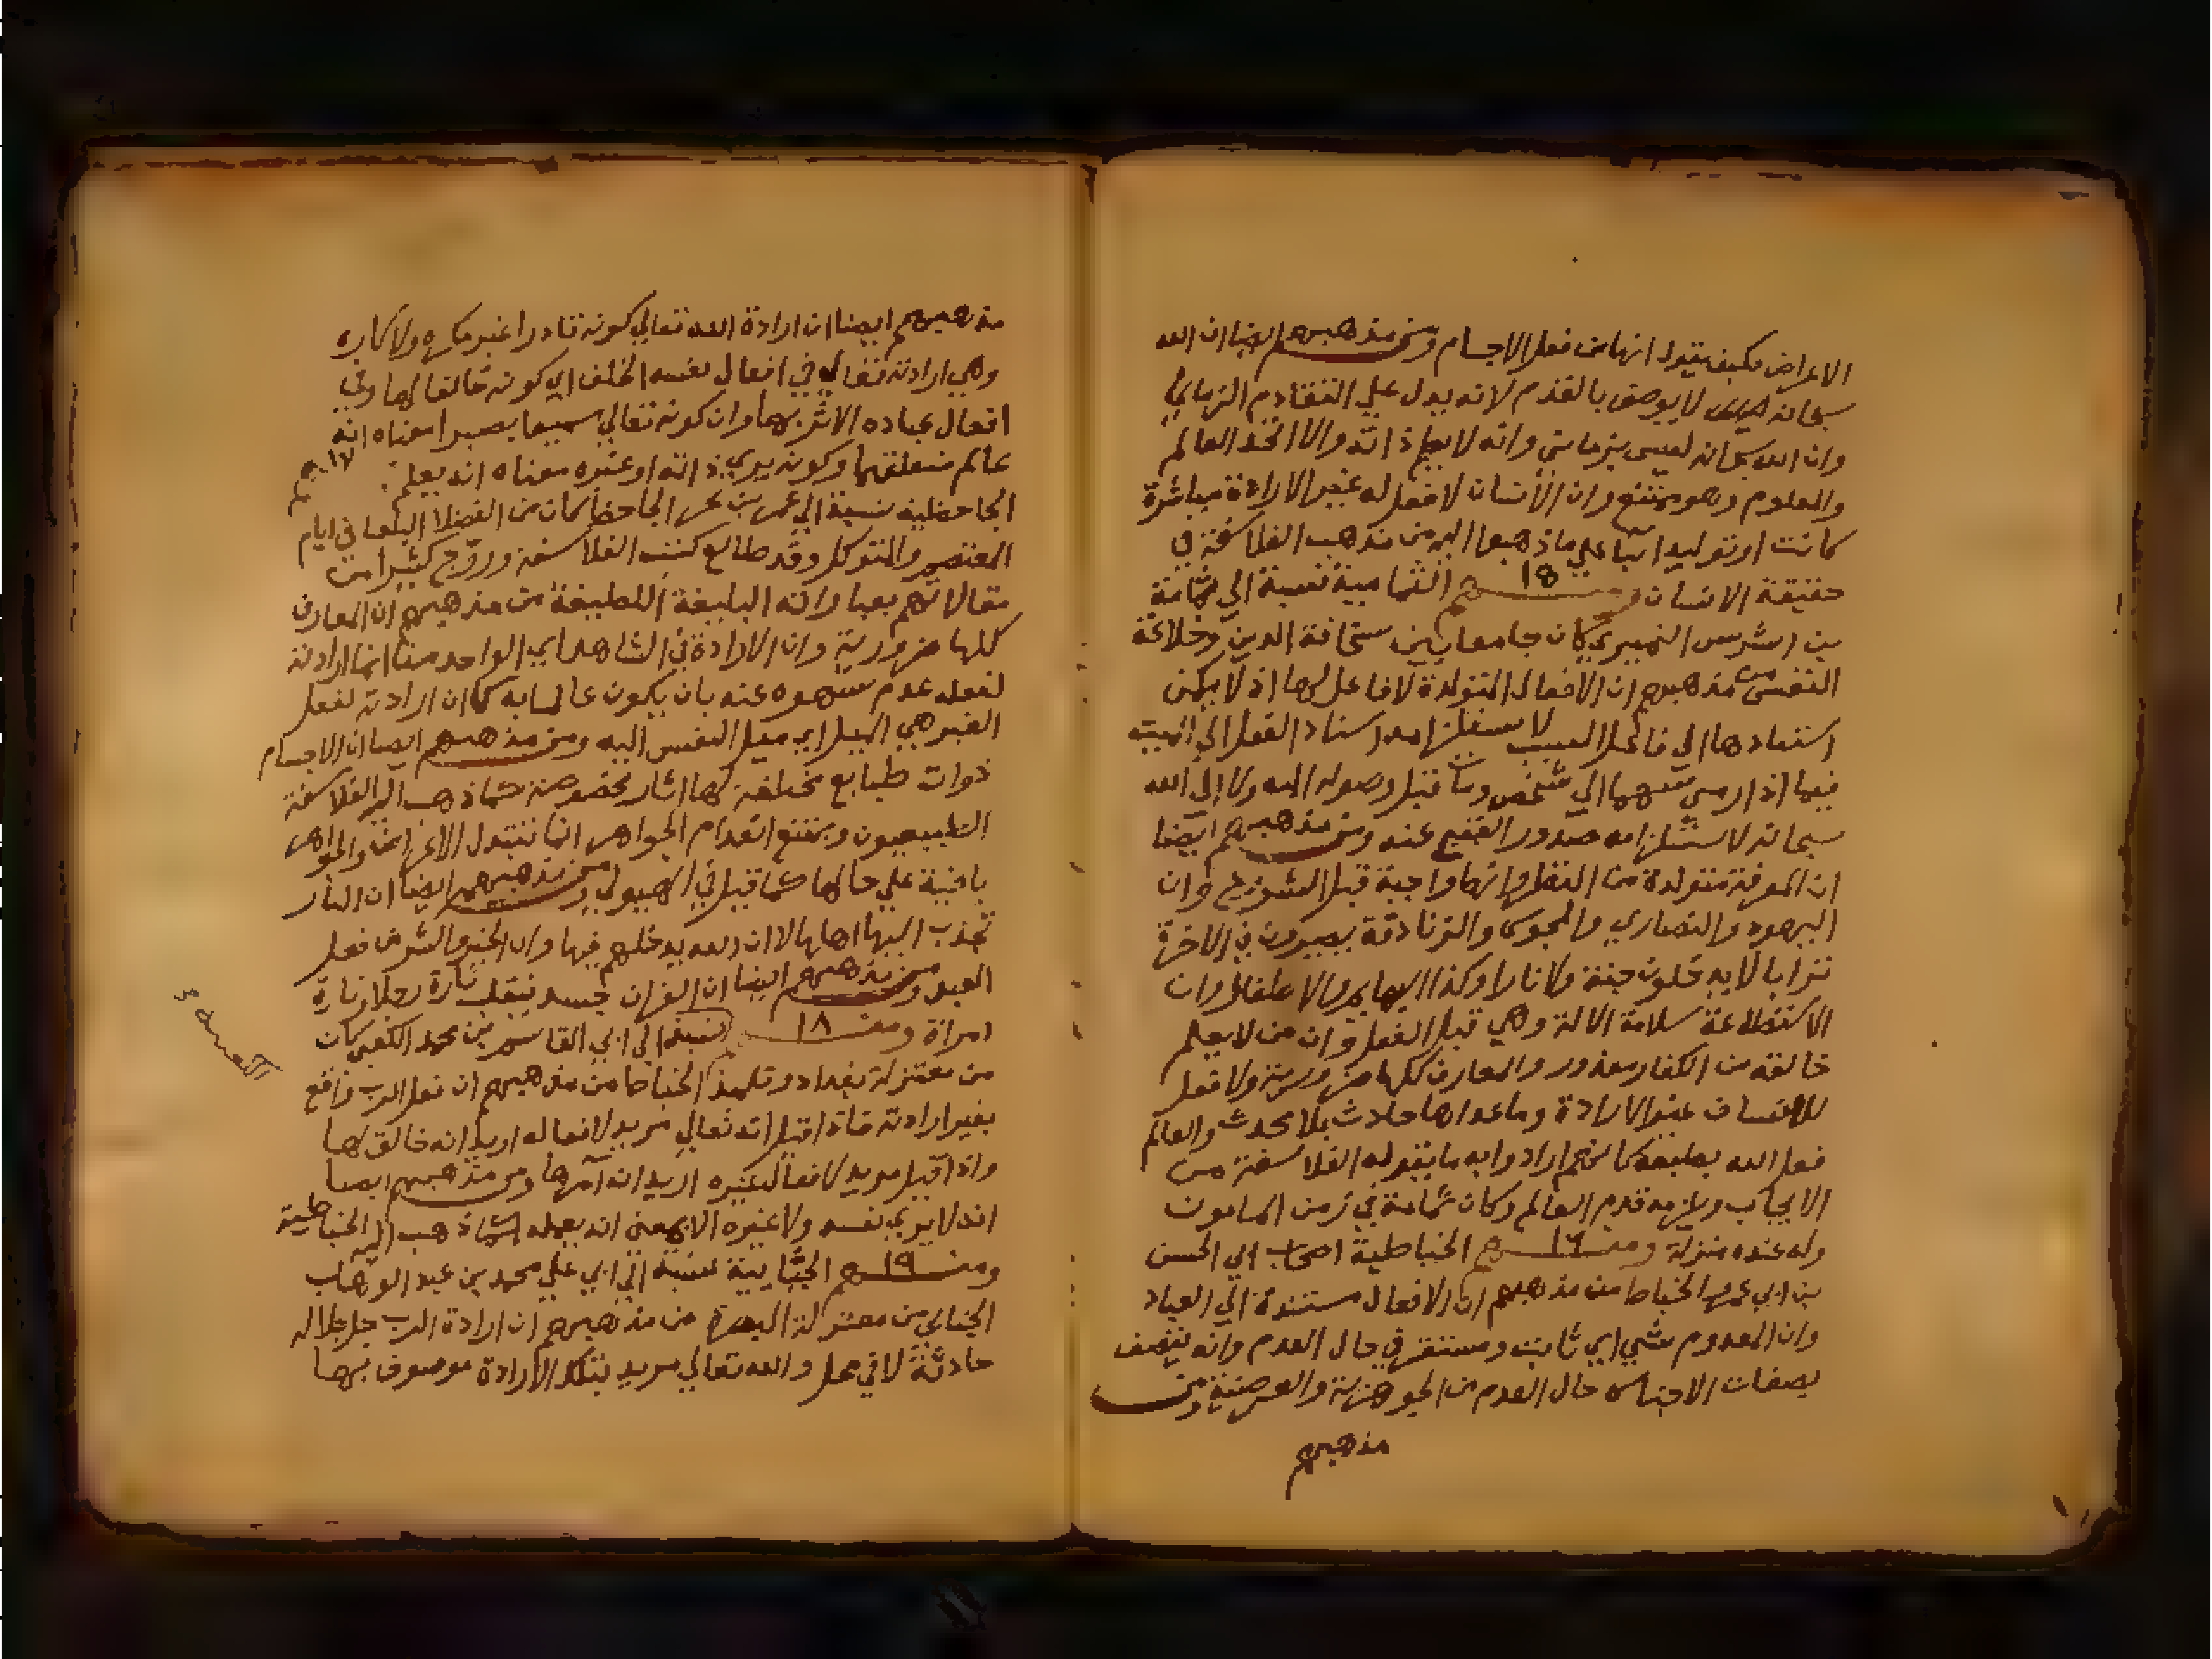 الاعراض فكيف يقول انها من فعل الاجسام ومن مذهبهم ايضا ان الله
سبحانه لا يوصف بالقدم لانه يدل علي التقادم الزماني
وان الله سبحانه ليس بزماني وانه لا يعلم ذاته والا اتحد العالم
والمعلوم وهو ممتنع وان الانسان لا فعل له غير الارادة مباشرة
كانت او توليدا بناء علي ما ذهبوا اليه من مذهب الفلاسفة في
حقيقة الانسان ومنهم ١٥ الثمامية نسبة الي ثمامة
بن اشرس النميري كان جامعا بين سخافة الدين وخلاعة
النفس من مذهبهم ان الافعال المتولدة لا فاعل لها اذ لا يمكن
استنادها الي فاعل السبب لاستلزامه اسناد الفعل الي الميت
فيما اذا رمي سهما الي شخص ومات قبل وصوله اليه ولا الي الله
سبحانه لاستلزامه صدور القبيح عنه ومن مذهبهم ايضا
ان المعرفة متولدة من النظر وانها واجبة قبل الشرع وان
اليهود والنصاري والمجوس والزنادقة يصيرون في الاخرة
ترابا لا يدخلون جنة ولا نارا وكذا البهايم والاطفال وان
الاستطاعة سلامة الالة وهي قبل الفعل وان من لا يعلم
خالقه من الكفار معذور والمعارف كلها ضرورية ولا فعل
للانسان غير الارادة وما عداها حادث بلا محدث والعالم
فعل الله بطبعه كانهم ارادوا به ما يقوله الفلاسفة من
الايجاب ويلزمه قدم العالم وكان ثمامة في زمن المامون
وله عنده منزلة ومنهم ١٦ الخياطية اصحاب ابي الحسن
بن ابي عمرو الخياط من مذهبهم ان الافعال مستندة الي العباد
وان المعدوم شي اي ثابت ومستقر في حال العدم وانه يتصف
بصفات الاجناس حال العدم من الجوهرية والعرضية ومن
مذهبهم
مذهبهم ايضا ان ارادة الله تعالي كونه قادرا غير مكره ولا كاره
وهي ارادته تعالي في افعال نفسه الخلق اي كونه خالقا لها وفي
افعال عباده الامر بها وان كونه تعالي سميعا بصيرا معناه انه
عالم متعلقهما وكونه يري ذاته او غيره معناه انه يعلم ١٧
الجاحظية نسبة الي عمرو بن بحر الجاحظ كان من الفضلا البلغا في ايام
المعتصم والمتوكل وقد طالع كتب الفلاسفة وروج كثيرا من
مقالاتهم بعباراته البليغة اللطيفة من مذهبهم ان المعارف
كلها ضرورية وان الارادة في الشاهد اي الواحد منا انما ارادته
لفعله عدم سهوه عنه بان يكون عالما به كما ان ارادته لفعل
الغير هي الميل اي ميل النفس اليه ومن مذهبهم ايضا ان الاجسام
ذوات طبايع مختلفة لها اثار مخصوصة كما ذهب اليه الفلاسفة
الطبيعيون ويمتنع انعدام الجواهر انما تتبدل الاعراض والجواهر
باقية علي حالها كما قيل في الهيولي ومن مذهبهم ايضا ان النار
تجذب اليها اهلها لا ان الله يدخلهم فيها وان الخير والشر من فعل
العبد ومن مذهبهم ايضا ان القران جسد ينقلب تارة رجلا وتارة
امراة ومنهم ١٨ نسبة الي ابي القاسم بن محمد الكعبي كان
الكعبية صح
من معتزلة بغداد وتلميذ الخياط من مذهبهم ان فعل الرب واقع
بغير ارادته فاذا قيل انه تعالي مريد لافعاله اريد انه خالق لها
واذا قيل مريد لافعال غيره اريد انه آمر بها ومن مذهبهم ايضا
انه لا يري نفسه ولا غيره الا بمعني انه يعلمه كما ذهب اليه الخياطية
ومنهم ١٩ الجبائية نسبة الي ابي علي محمد بن عبد الوهاب
الجبائي من معتزلة البصرة من مذهبهم ان ارادة الرب جل جلاله
حادثة لا في محل والله تعالي مريد بتلك الارادة موصوف بها